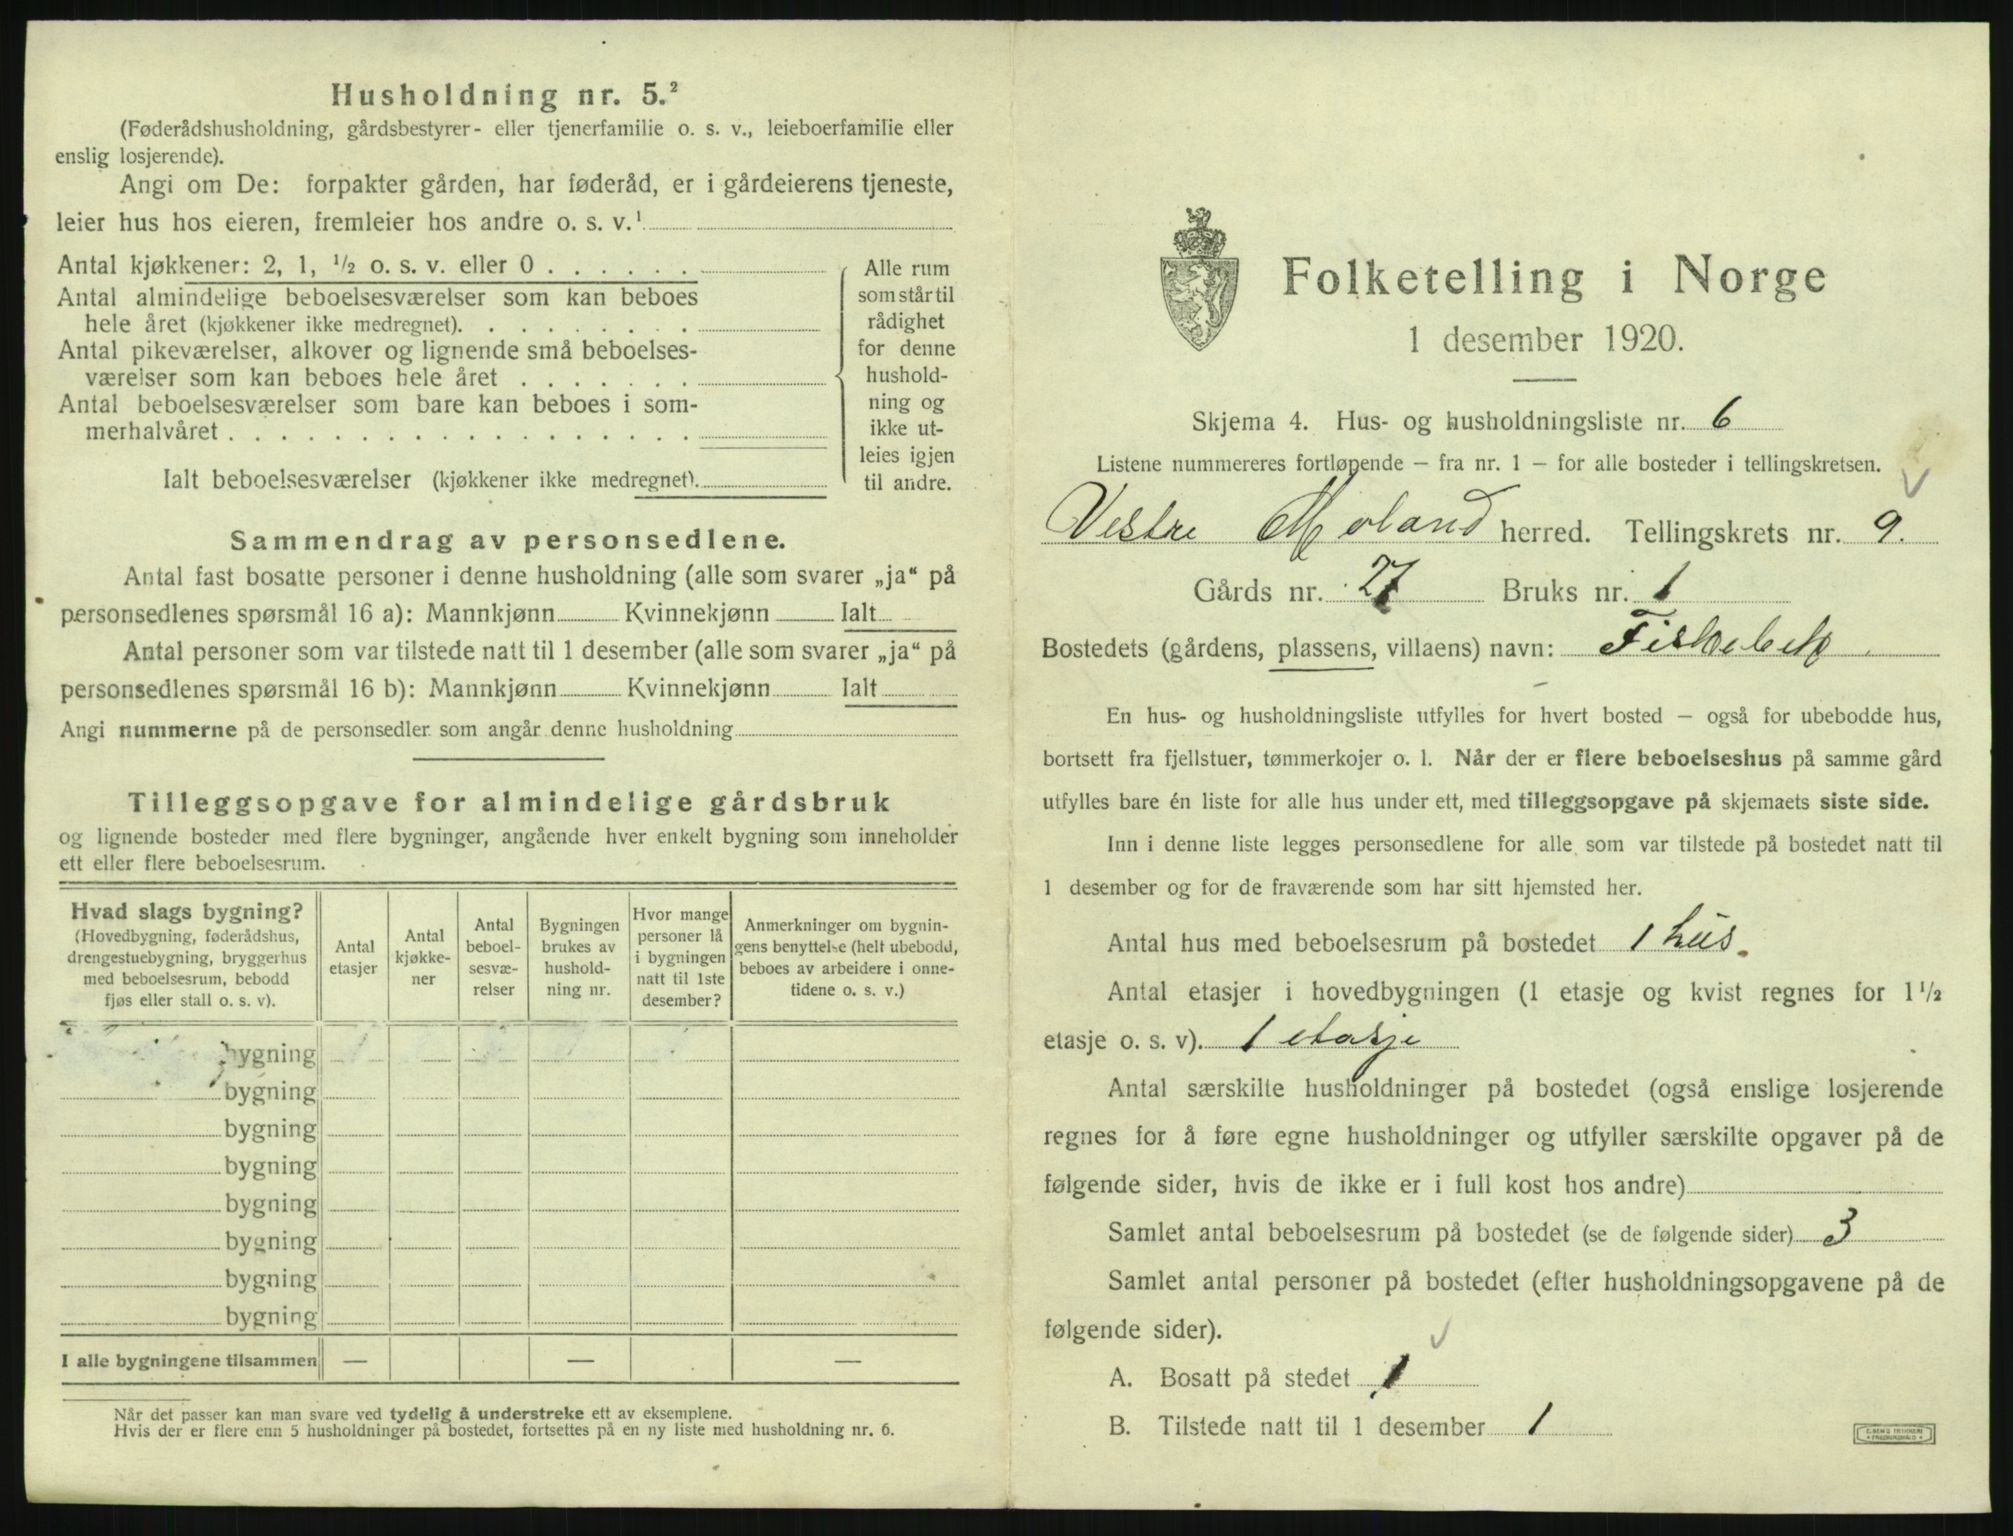 Husholdning nr. 5.²
(Føderådshusholdning, gårdsbestyrer- eller tjenerfamilie o. s. v., leieboerfamilie eller
enslig losjerende).
Angi om De: forpakter gården, har føderåd, er i gårdeierens tjeneste,
leier hus hos eieren, fremleier hos andre o. s. v.¹
Antal kjøkkener: 2, 1, ½ o. s. v. eller 0 . . . . . .
Antal almindelige beboelsesværelser som kan beboes
hele året (kjøkkener ikke medregnet). . . . . . . . .
Antal pikeværelser, alkover og lignende små beboelses-
værelser som kan beboes hele året . . . . . . .
Antal beboelsesværelser som bare kan beboes i som-
merhalvåret . . . . . . . . . . . . . . . . . .
Ialt beboelsesværelser (kjøkkener ikke medregnet).
Alle rum
som står til
rådighet
for denne
hushold-
ning og
ikke ut-
leies igjen
til andre.
Sammendrag av personsedlene.
Antal fast bosatte personer i denne husholdning (alle som svarer „ja“ på
personsedlenes spørsmål 16 a): Mannkjønn Kvinnekjønn Ialt
Antal personer som var tilstede natt til 1 desember (alle som svarer „ja“ på
personsedlenes spørsmål 16 b): Mannkjønn Kvinnekjønn Ialt
Angi nummerne på de personsedler som angår denne husholdning
Tilleggsopgave for almindelige gårdsbruk
og lignende bosteder med flere bygninger, angående hver enkelt bygning som inneholder
ett eller flere beboelsesrum.
Hvad slags bygning?
(Hovedbygning, føderådshus,
drengestuebygning, bryggerhus
med beboelsesrum, bebodd
fjøs eller stall o. s. v).
Antal
etasjer
Antal
kjøkke-
ner
Antal
beboel-
sesvæ-
relser
Bygningen
brukes av
hushold-
ning nr.
Hvor mange
personer lå
i bygningen
natt til 1ste
desember?
Anmerkninger om bygnin-
gens benyttelse (helt ubebodd,
beboes av arbeidere i onne-
tidene o. s. v.)
bygning
bygning
bygning
bygning
bygning
bygning
bygning
bygning
I alle bygningene tilsammen — — —
Når det passer kan man svare ved tydelig å understreke ett av eksemplene.
Hvis der er flere enn 5 husholdninger på bostedet, fortsettes på en ny liste med husholdning nr. 6.
Folketelling i Norge
1 desember 1920.
Skjema 4. Hus- og husholdningsliste nr. 6
Listene nummereres fortløpende – fra nr. 1 – for alle bosteder i tellingskretsen.
Vestre Moland herred. Tellingskrets nr. 9.
Gårds nr. 27 Bruks nr. 1
Bostedets (gårdens, plassens, villaens) navn: Fiskebek
En hus- og husholdningsliste utfylles for hvert bosted – også for ubebodde hus,
bortsett fra fjellstuer, tømmerkojer o. l. Når der er flere beboelseshus på samme gård
utfylles bare én liste for alle hus under ett, med tilleggsopgave på skjemaets siste side.
Inn i denne liste legges personsedlene for alle som var tilstede på bostedet natt til
1 desember og for de fraværende som har sitt hjemsted her.
Antal hus med beboelsesrum på bostedet 1 hus.
Antal etasjer i hovedbygningen (1 etasje og kvist regnes for 1½
etasje o. s. v). 1 etasje
Antal særskilte husholdninger på bostedet (også enslige losjerende
regnes for å føre egne husholdninger og utfyller særskilte opgaver på de
følgende sider, hvis de ikke er i full kost hos andre)
Samlet antal beboelsesrum på bostedet (se de følgende sider) 3
Samlet antal personer på bostedet (efter husholdningsopgavene på de
følgende sider).
A. Bosatt på stedet 1
B. Tilstede natt til 1 desember 1